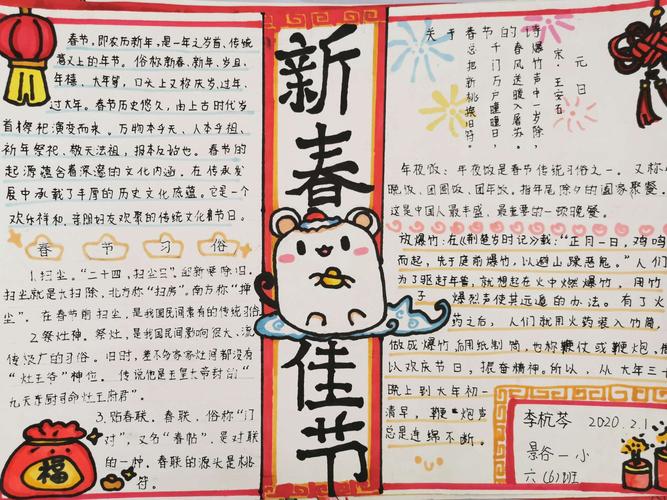 春节,即农历新年,是一年之岁首、传统
意义上的年节。俗称新春、新年、岁旦、
年禧、大年等,口头上又称庆岁、过年、
过大年。春节历史悠久,由上古时代岁
首祈祀演变而来。万物本乎天、人本乎祖,
祈年祭祀、敬天法祖,报本反始也。春节的
起源蕴含着深邃的文化内涵,在传承发
展中承载了丰厚的历史文化底蕴。它是一个
欢乐祥和、亲朋好友欢聚的传统文化节日。
春节习俗
1.扫尘。“二十四,扫尘日”,迎新要除旧,
扫尘就是大扫除,北方称“扫房”,南方称“掸
尘”。在春节前扫尘,是我国民间素有的传统习俗
2.祭灶神。祭灶,是我国民间影响很大、流
传极广的习俗。旧时,差不多家家灶间都设有
“灶王爷”神位。传说他是玉皇大帝封的“
九天东厨司命灶王府君”。
3.贴春联。春联,俗称“门
对”,又名“春帖”,是对联
的一种。春联的源头是桃
符。
福
新春佳节
关于春节的诗
元日
宋 王安石
爆竹声中一岁除,
春风送暖入屠苏。
千门万户曈曈日,
总把新桃换旧符。
年夜饭:年夜饭是春节传统习俗之一。又称
晚饭、团圆饭、团年饭。指年尾除夕的阖家聚餐
这是中国人最丰盛、最重要的一顿晚餐
放爆竹:在《荆楚岁时记》载:“正月一日,鸡鸣
而起,先于庭前爆竹,以避山臊恶鬼。”人们
为了驱赶年兽,就想起在火中燃爆竹,用竹
子爆烈声使其远遁的办法。有了火
药之后,人们就用火药装入竹筒,
做成爆竹,后用纸制筒,也称鞭仗或鞭炮,
以欢庆节日,振奋精神。所以,从大年三十
晚上到大年初一
清早,鞭炮声
总是连绵不断。
李杭芩 2020.2.1
景谷一小
六(6)班